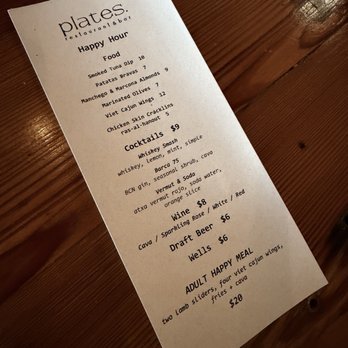 plates.
restaurant & bar
Happy Hour
Food
Smoked Tuna Dip 10
Patatas Bravas 7
Manchego & Marcona Almonds 9
Marinated Olives 7
Viet Cajun Wings 12
Chicken Skin Cracklins
ras-al-hanout 3
Cocktails $9
Whiskey Smash
whiskey, lemon, mint, simple
Barca 75
BCN gin, seasonal shrub, cava
Vermut & Soda
atxa vermut rojo, soda water,
orange slice
Wine $8
Cava / Sparkling Rose / White / Red
Draft Beer $6
Wells $6
ADULT HAPPY MEAL
two lamb sliders, four viet cajun wings,
fries + cava
$20